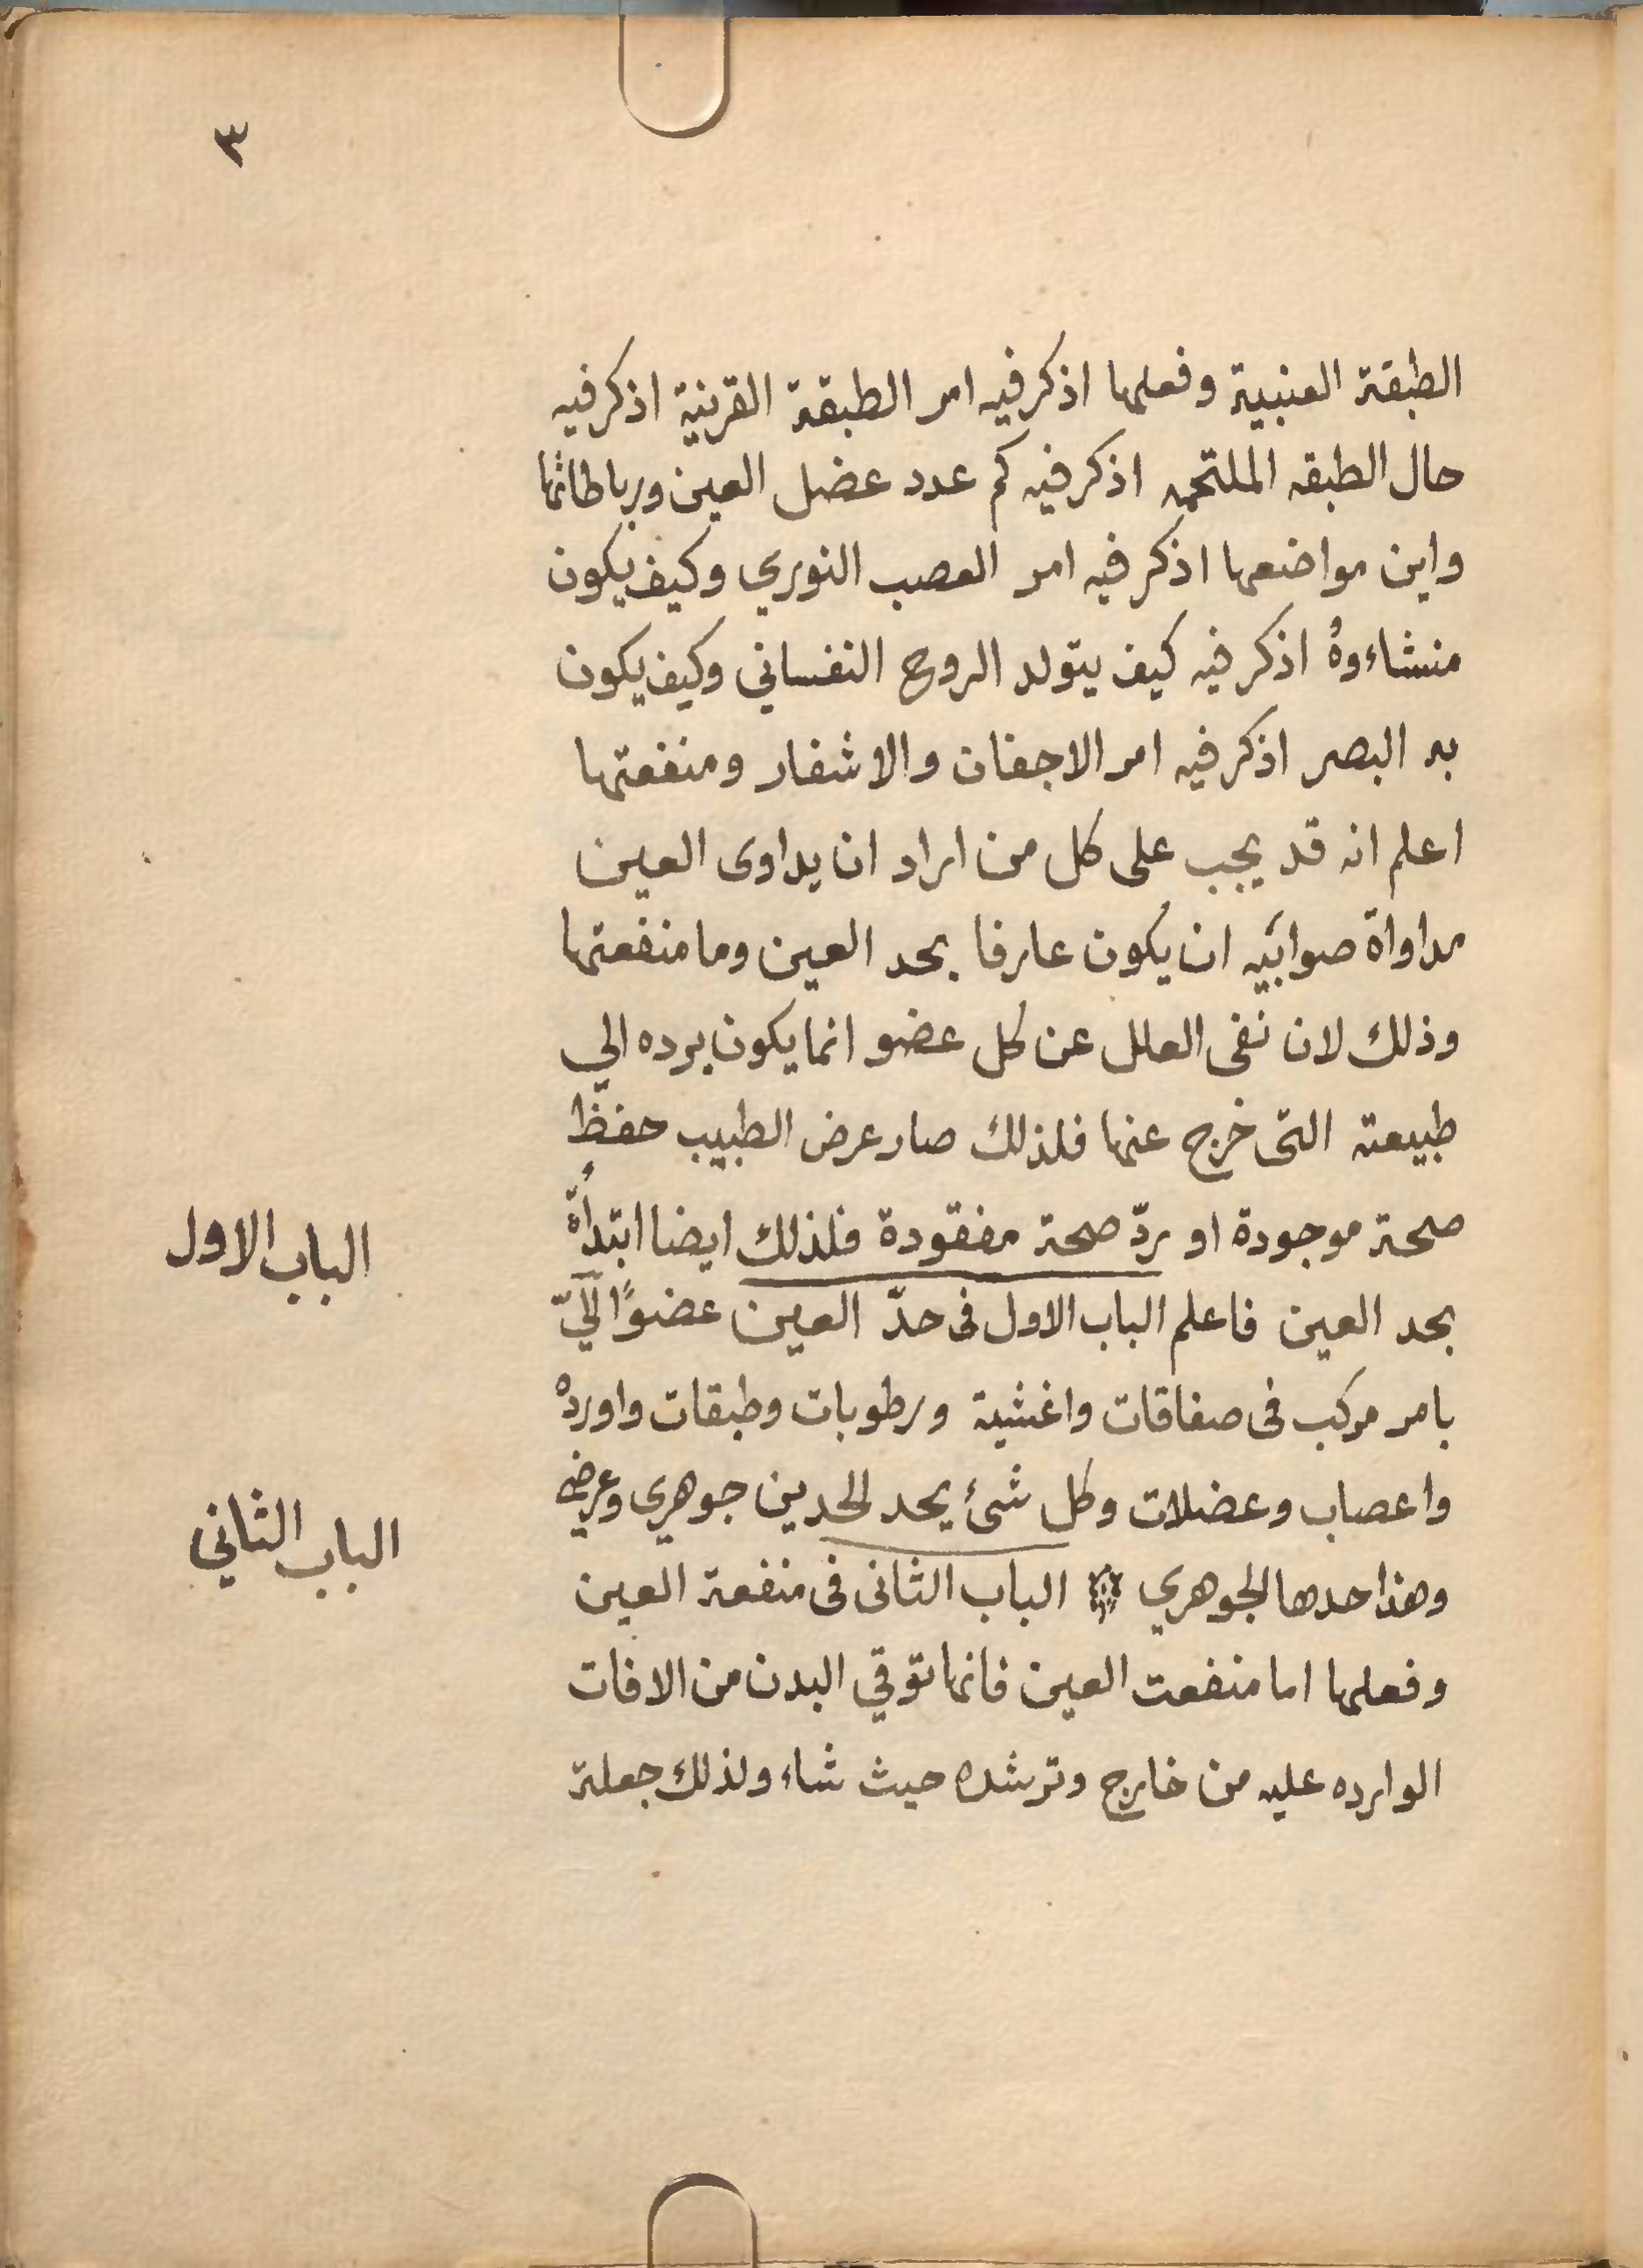 ٣
الطبقة العنبية وفعلها اذكر فيه امر الطبقة القرنية اذكر فيه
حال الطبقه الملتحمه اذكر فيه كم عدد عضل العين ورباطاتها
واين مواضعها اذكر فيه امر العصب النوري وكيف يكون
منشاءوهُ اذكر فيه كيف يتولد الروح النفساني وكيف يكون
به البصر اذكر فيه امر الاجفان والاشفار ومنفعتها
اعلم انه قد يجب على كل من اراد ان يداوى العين
مداواة صوابيه ان يكون عارفا بحد العين وما منفعتها
وذلك لان نفى العلل عن كل عضو انما يكون برده الي
طبيعته التى خرج عنها فلذلك صار عرض الطبيب حفظ
صحة موجودة او ردّ صحة مفقودة فلذلك ايضا ابتدأة
الباب الاول
بحد العين فاعلم الباب الاول فى حدّ العين عضوًا آليّ
بامر مركب فى صفاقات واغشية ورطوبات وطبقات واورده
واعصاب وعضلات وكل شئ يحد لحدين جوهري وعرضي
الباب الثاني
وهذا حدها الجوهري ۞ الباب الثانى فى منفعة العين
وفعلها اما منفعت العين فانها توقي البدن من الافات
الوارده عليه من خارج وترشده حيث شاء ولذلك جعلة